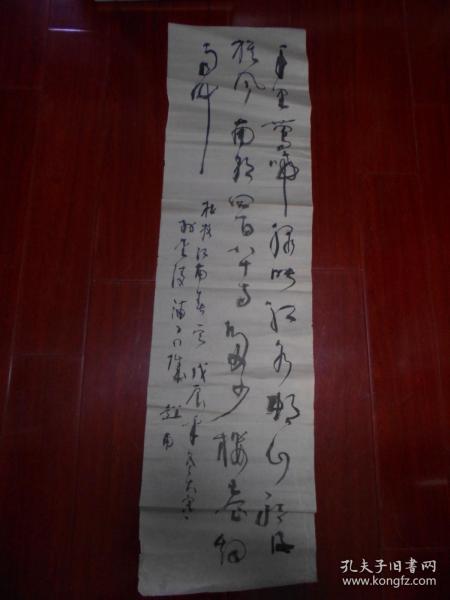 千里莺啼绿映红水村山郭酒
旗风南朝四百八十寺多少楼台烟
雨中
杜牧江南春 戊辰年冬大寒
于金陵
孔夫子旧书网
www.kongfz.com